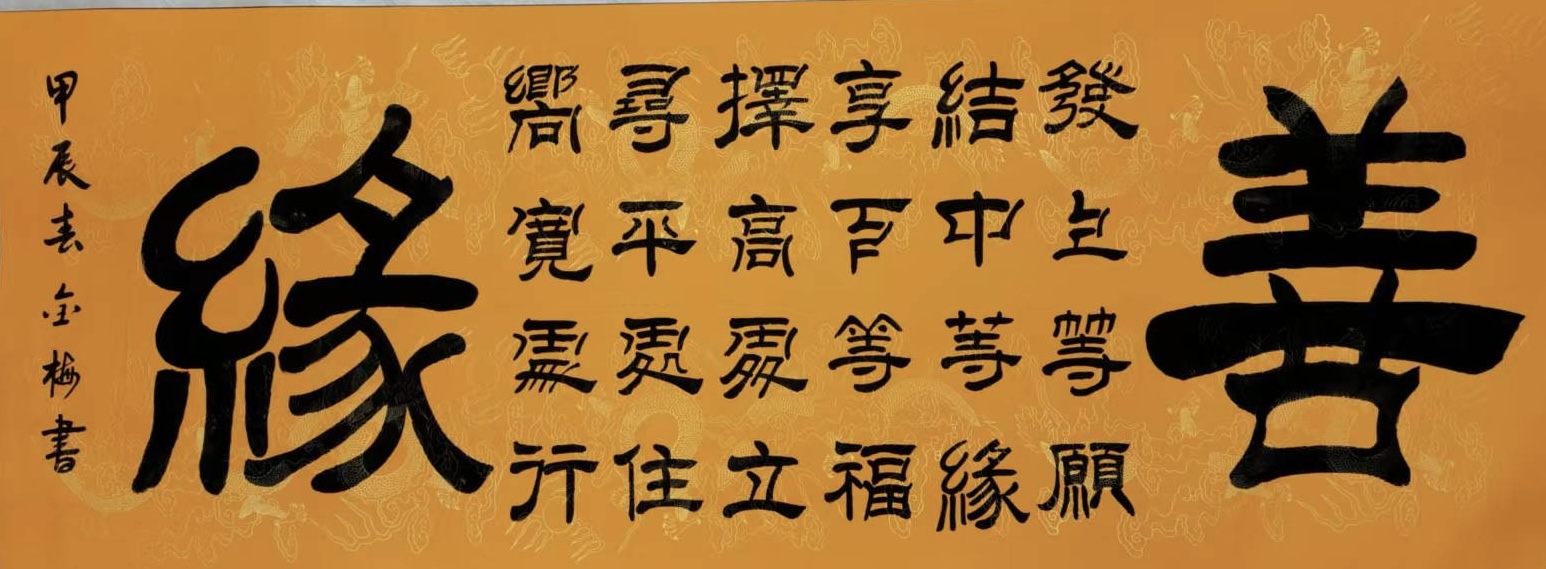 善
發上等願
結中等緣
享下等福
擇高處立
尋平處住
嚮寬處行
緣
甲辰春金梅書